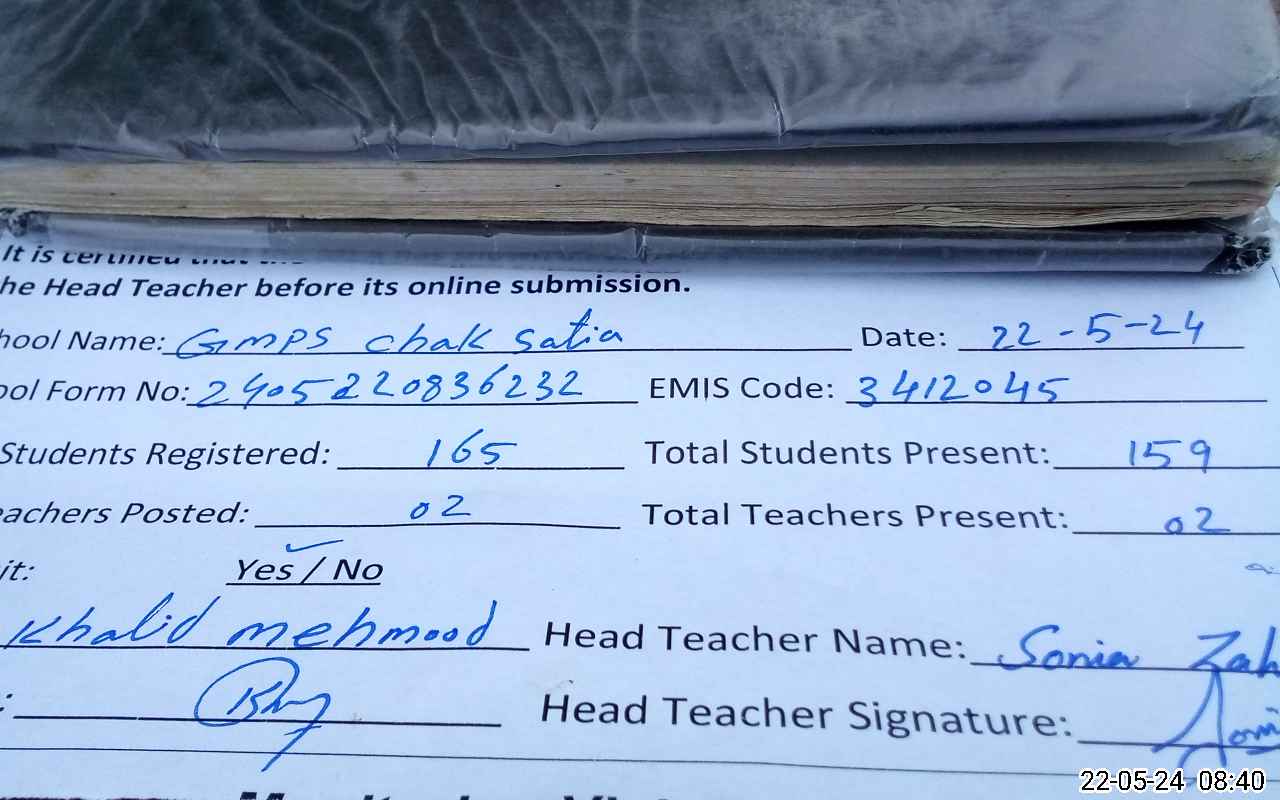 It is certified that the
he Head Teacher before its online submission.
hool Name: GMPS chak satia Date: 22-5-24
ool Form No: 2405220836232 EMIS Code: 3412045
Students Registered: 165 Total Students Present: 159
eachers Posted: 02 Total Teachers Present: 02
it: Yes / No
Khalid mehmood Head Teacher Name: Sonia Zah
: Head Teacher Signature:
22-05-24 08:40